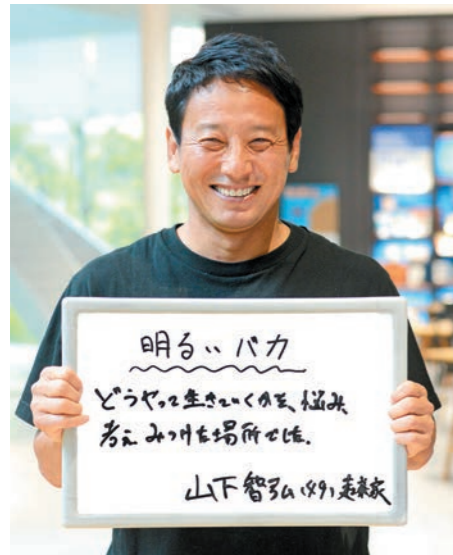 明るいバカ
どうやって生きていくかを、悩み、
考えみつけた場所でした。
山下智弘(49)起業家